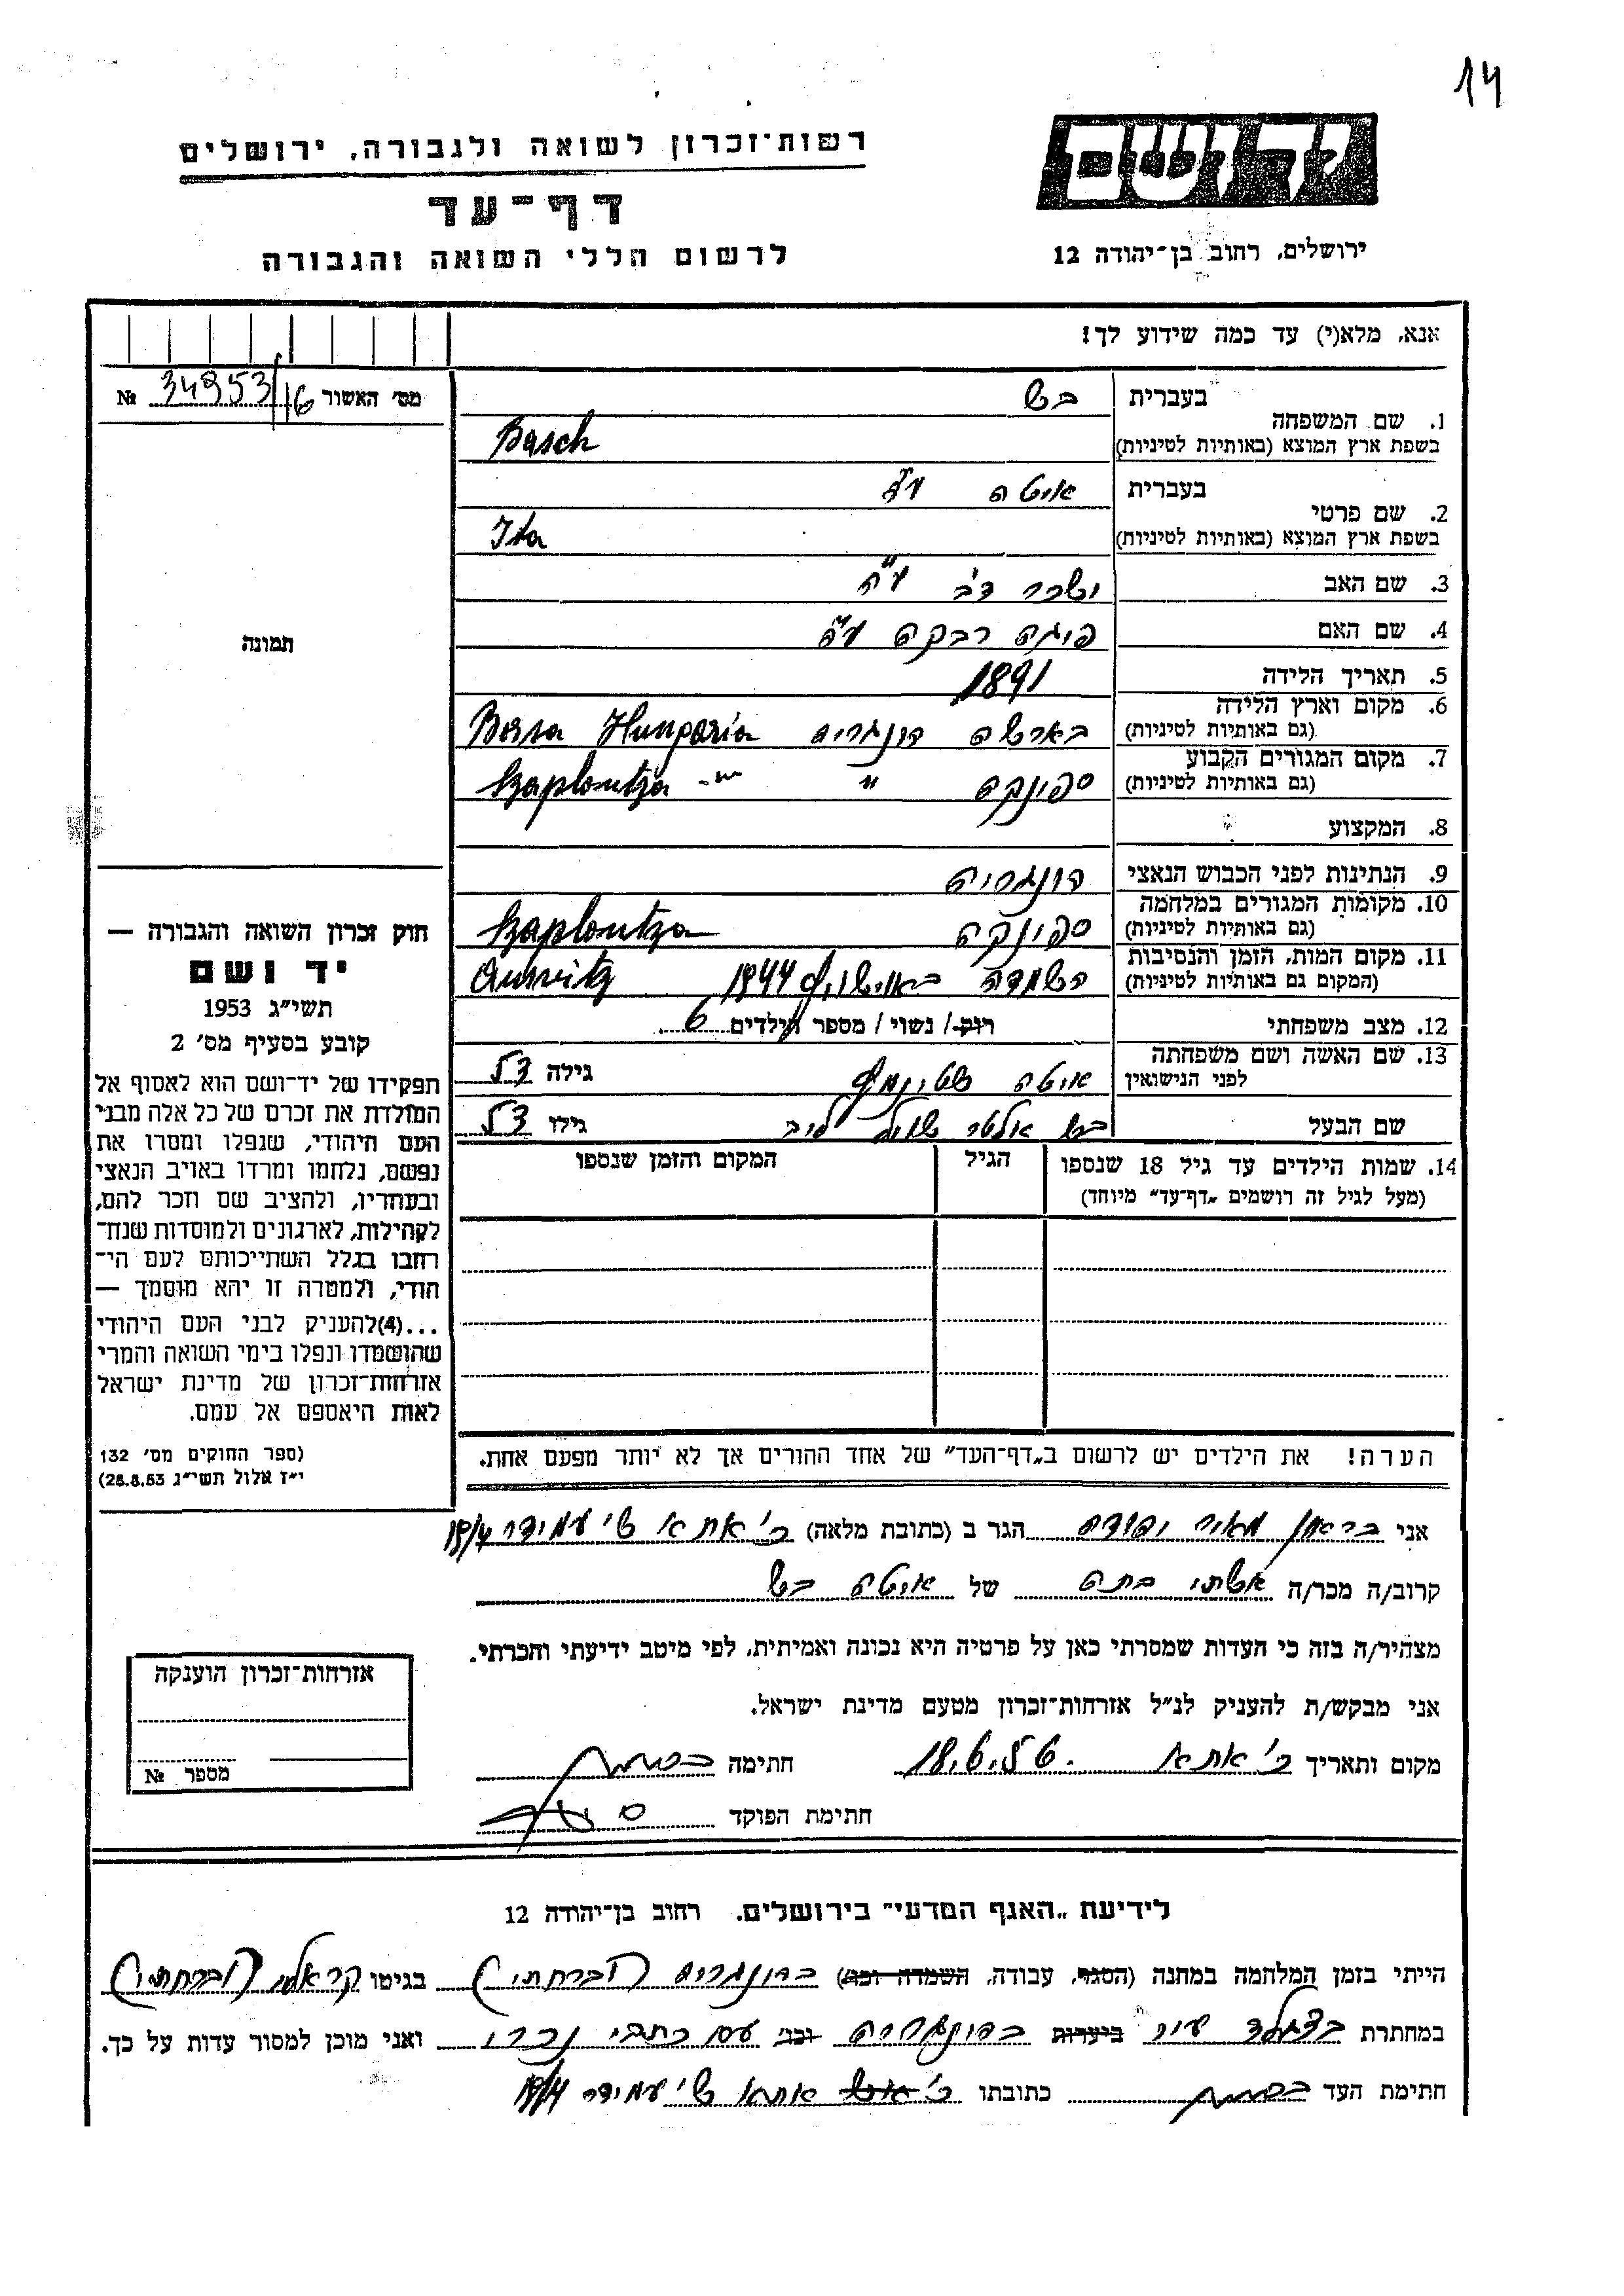 14
רשות־זכרון לשואה ולגבורה, ירושלים
דף־עד
לרשום חללי השואה והגבורה
יד ושם
ירושלים, רחוב בן־יהודה 12
אנא, מלא(י) עד כמה שידוע לך!
מס׳ האשור 34953/16 №
תמונה
1. שם המשפחה
בעברית בש
בשפת ארץ המוצא (באותיות לטיניות) Basch
2. שם פרטי
בעברית איטה ע״ה
בשפת ארץ המוצא (באותיות לטיניות) Ita
3. שם האב ישכר דב ע״ה
4. שם האם פיגה רבקה ע״ה
5. תאריך הלידה 1891
6. מקום וארץ הלידה
(גם באותיות לטיניות) בארשה הונגריה Borsa Hungaria
7. מקום המגורים הקבוע
(גם באותיות לטיניות) ספינקה " Szaploutza -"-
8. המקצוע
9. הנתינות לפני הכבוש הנאצי הונגריה
10. מקומות המגורים במלחמה
(גם באותיות לטיניות) ספינקה Szaploutza
11. מקום המות, הזמן והנסיבות
(המקום גם באותיות לטיניות) השמדה באושויץ 1944 Auswitz
12. מצב משפחתי רוק/ נשוי/ מספר הילדים 6
13. שם האשה ושם משפחתה
לפני הנישואין איטה גילה 53
שם הבעל בש אלטר שמואל לייב גילו 53
14. שמות הילדים עד גיל 18 שנספו הגיל המקום והזמן שנספו
(מעל לגיל זה רושמים „דף־עד״ מיוחד)
הערה! את הילדים יש לרשום ב„דף־העד״ של אחד ההורים אך לא יותר מפעם אחת.
חוק זכרון השואה והגבורה —
יד ושם
תשי״ג 1953
קובע בסעיף מס׳ 2
תפקידו של יד־ושם הוא לאסוף אל
המולדת את זכרם של כל אלה מבני
העם היהודי, שנפלו ומסרו את
נפשם, נלחמו ומרדו באויב הנאצי
ובעוזריו, ולהציב שם וזכר להם,
לקהילות, לארגונים ולמוסדות שנח־
רחבו בגלל השתייכותם לעם הי־
הודי, ולמטרה זו יהא מוסמך —
...(4)להעניק לבני העם היהודי
שהושמדו ונפלו בימי השואה והמרי
אזרחות־זכרון של מדינת ישראל
לאות היאספם אל עמם.
(ספר החוקים מס׳ 132
י״ז אלול תשי״ג 28.8.53)
אני בראון מאיר יהודה הגר ב (כתובת מלאה) ק׳ אתא ש׳ עמידר 19/4
קרוב/ה מכר/ה אשתי בתה של איטה בש
מצהיר/ה בזה כי העדות שמסרתי כאן על פרטיה היא נכונה ואמיתית, לפי מיטב ידיעתי והכרתי.
אני מבקש/ת להעניק לנ״ל אזרחות־זכרון מטעם מדינת ישראל.
מקום ותאריך ק׳ אתא חתימה
חתימת הפוקד
אזרחות־זכרון הוענקה
מספר №
לידיעת „האגף המדעי״ בירושלים. רחוב בן־יהודה 12
הייתי בזמן המלחמה במחנה (הסגר, עבודה, השמדה וכו׳) בהונגריה (וברחתי) בגיטו (וברחתי)
במחתרת עיר ביערות בהונגריה וכו׳ עם כתבי נכרי ואני מוכן למסור עדות על כך.
חתימת העד כתובתו ק׳ אתא ש׳ עמידר 19/4